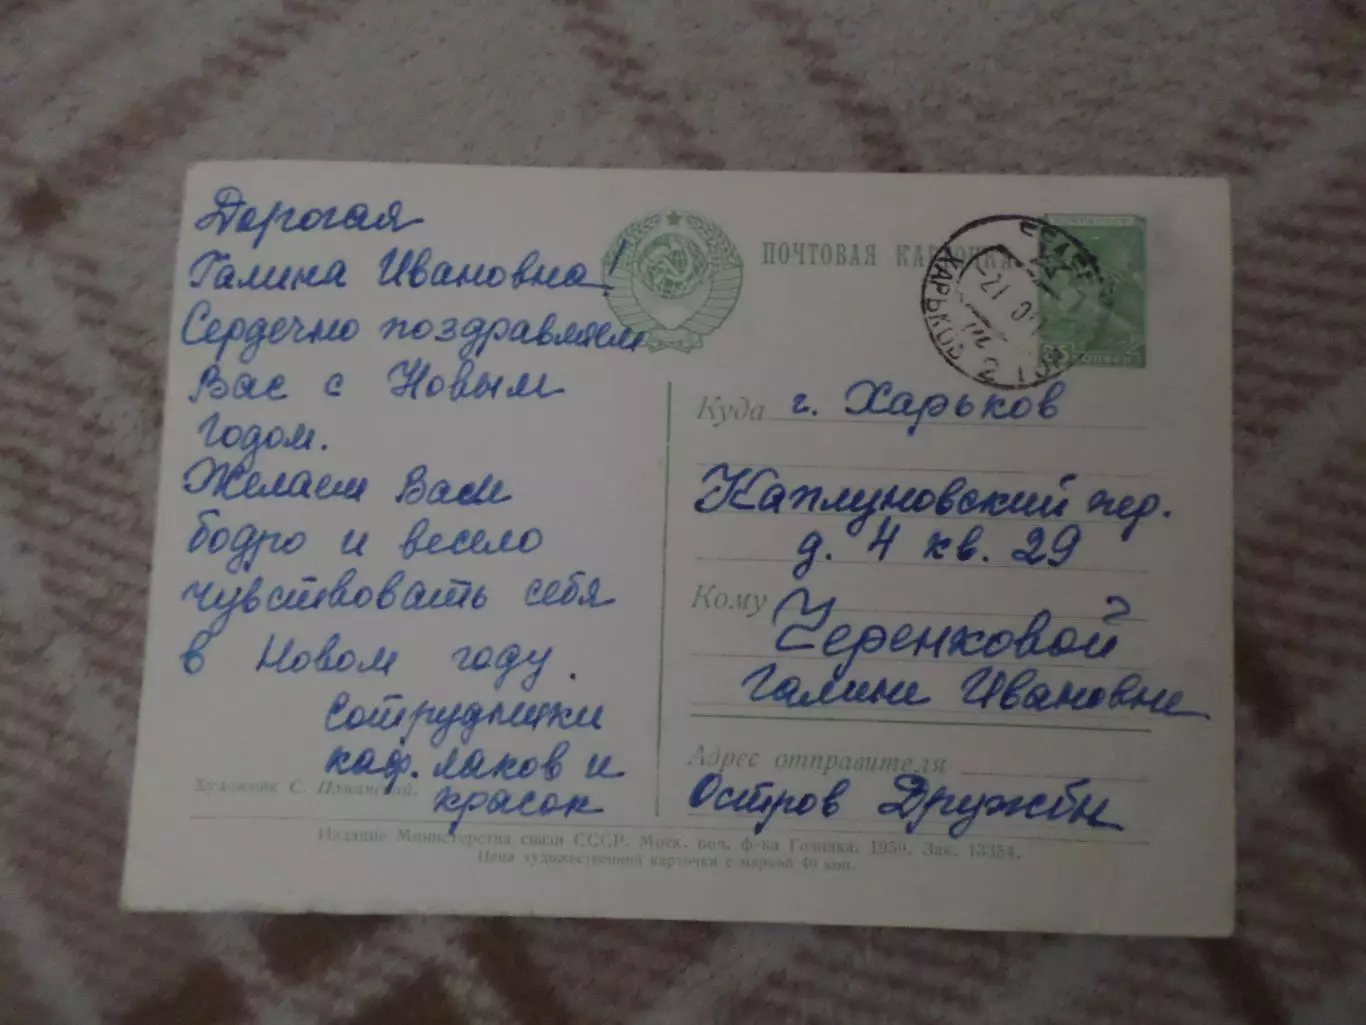 Дорогая
Галина Ивановна!
Сердечно поздравляем
Вас с Новым
годом.
Желаем Вам
бодро и весело
чувствовать себя
в Новом году.
Сотрудники
каф. лаков и
красок
Художник С.
ПОЧТОВАЯ КАРТОЧКА
ХАРЬКОВ
Куда г. Харьков
Каплуновский пер.
д. 4 кв. 29
Кому Черенковой
Галине Ивановне
Адрес отправителя
Остров Дружбы
Издание Министерства связи СССР. Моск. печ. ф-ка Гознака. 1959. Зак. 13354.
Цена художественной карточки с маркой 40 коп.